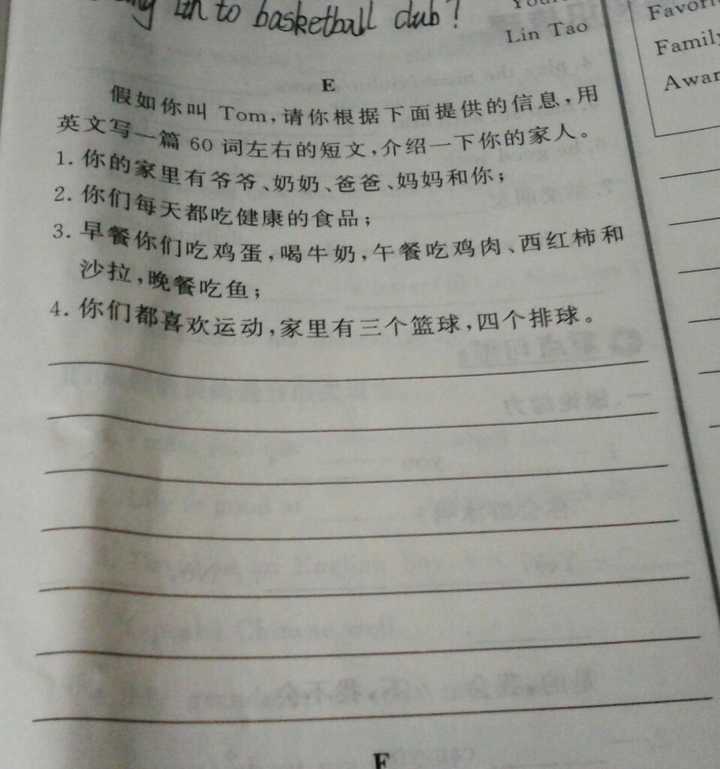 to basketball club?
Lin Tao
Famil
Awar
E
假如你叫 Tom,请你根据下面提供的信息,用
英文写一篇 60 词左右的短文,介绍一下你的家人。
1. 你的家里有爷爷、奶奶、爸爸、妈妈和你;
2. 你们每天都吃健康的食品;
3. 早餐你们吃鸡蛋,喝牛奶,午餐吃鸡肉、西红柿和
沙拉,晚餐吃鱼;
4. 你们都喜欢运动,家里有三个篮球,四个排球。
F